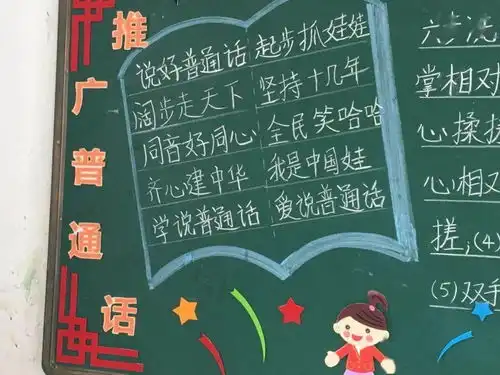 推广普通话
说好普通话 起步抓娃娃
阔步走天下 坚持十几年
同音好同心 全民笑哈哈
齐心建中华 我是中国娃
学说普通话 爱说普通话
六步洗
掌相对
心揉搓
心相对
搓;(4)
(5)双手